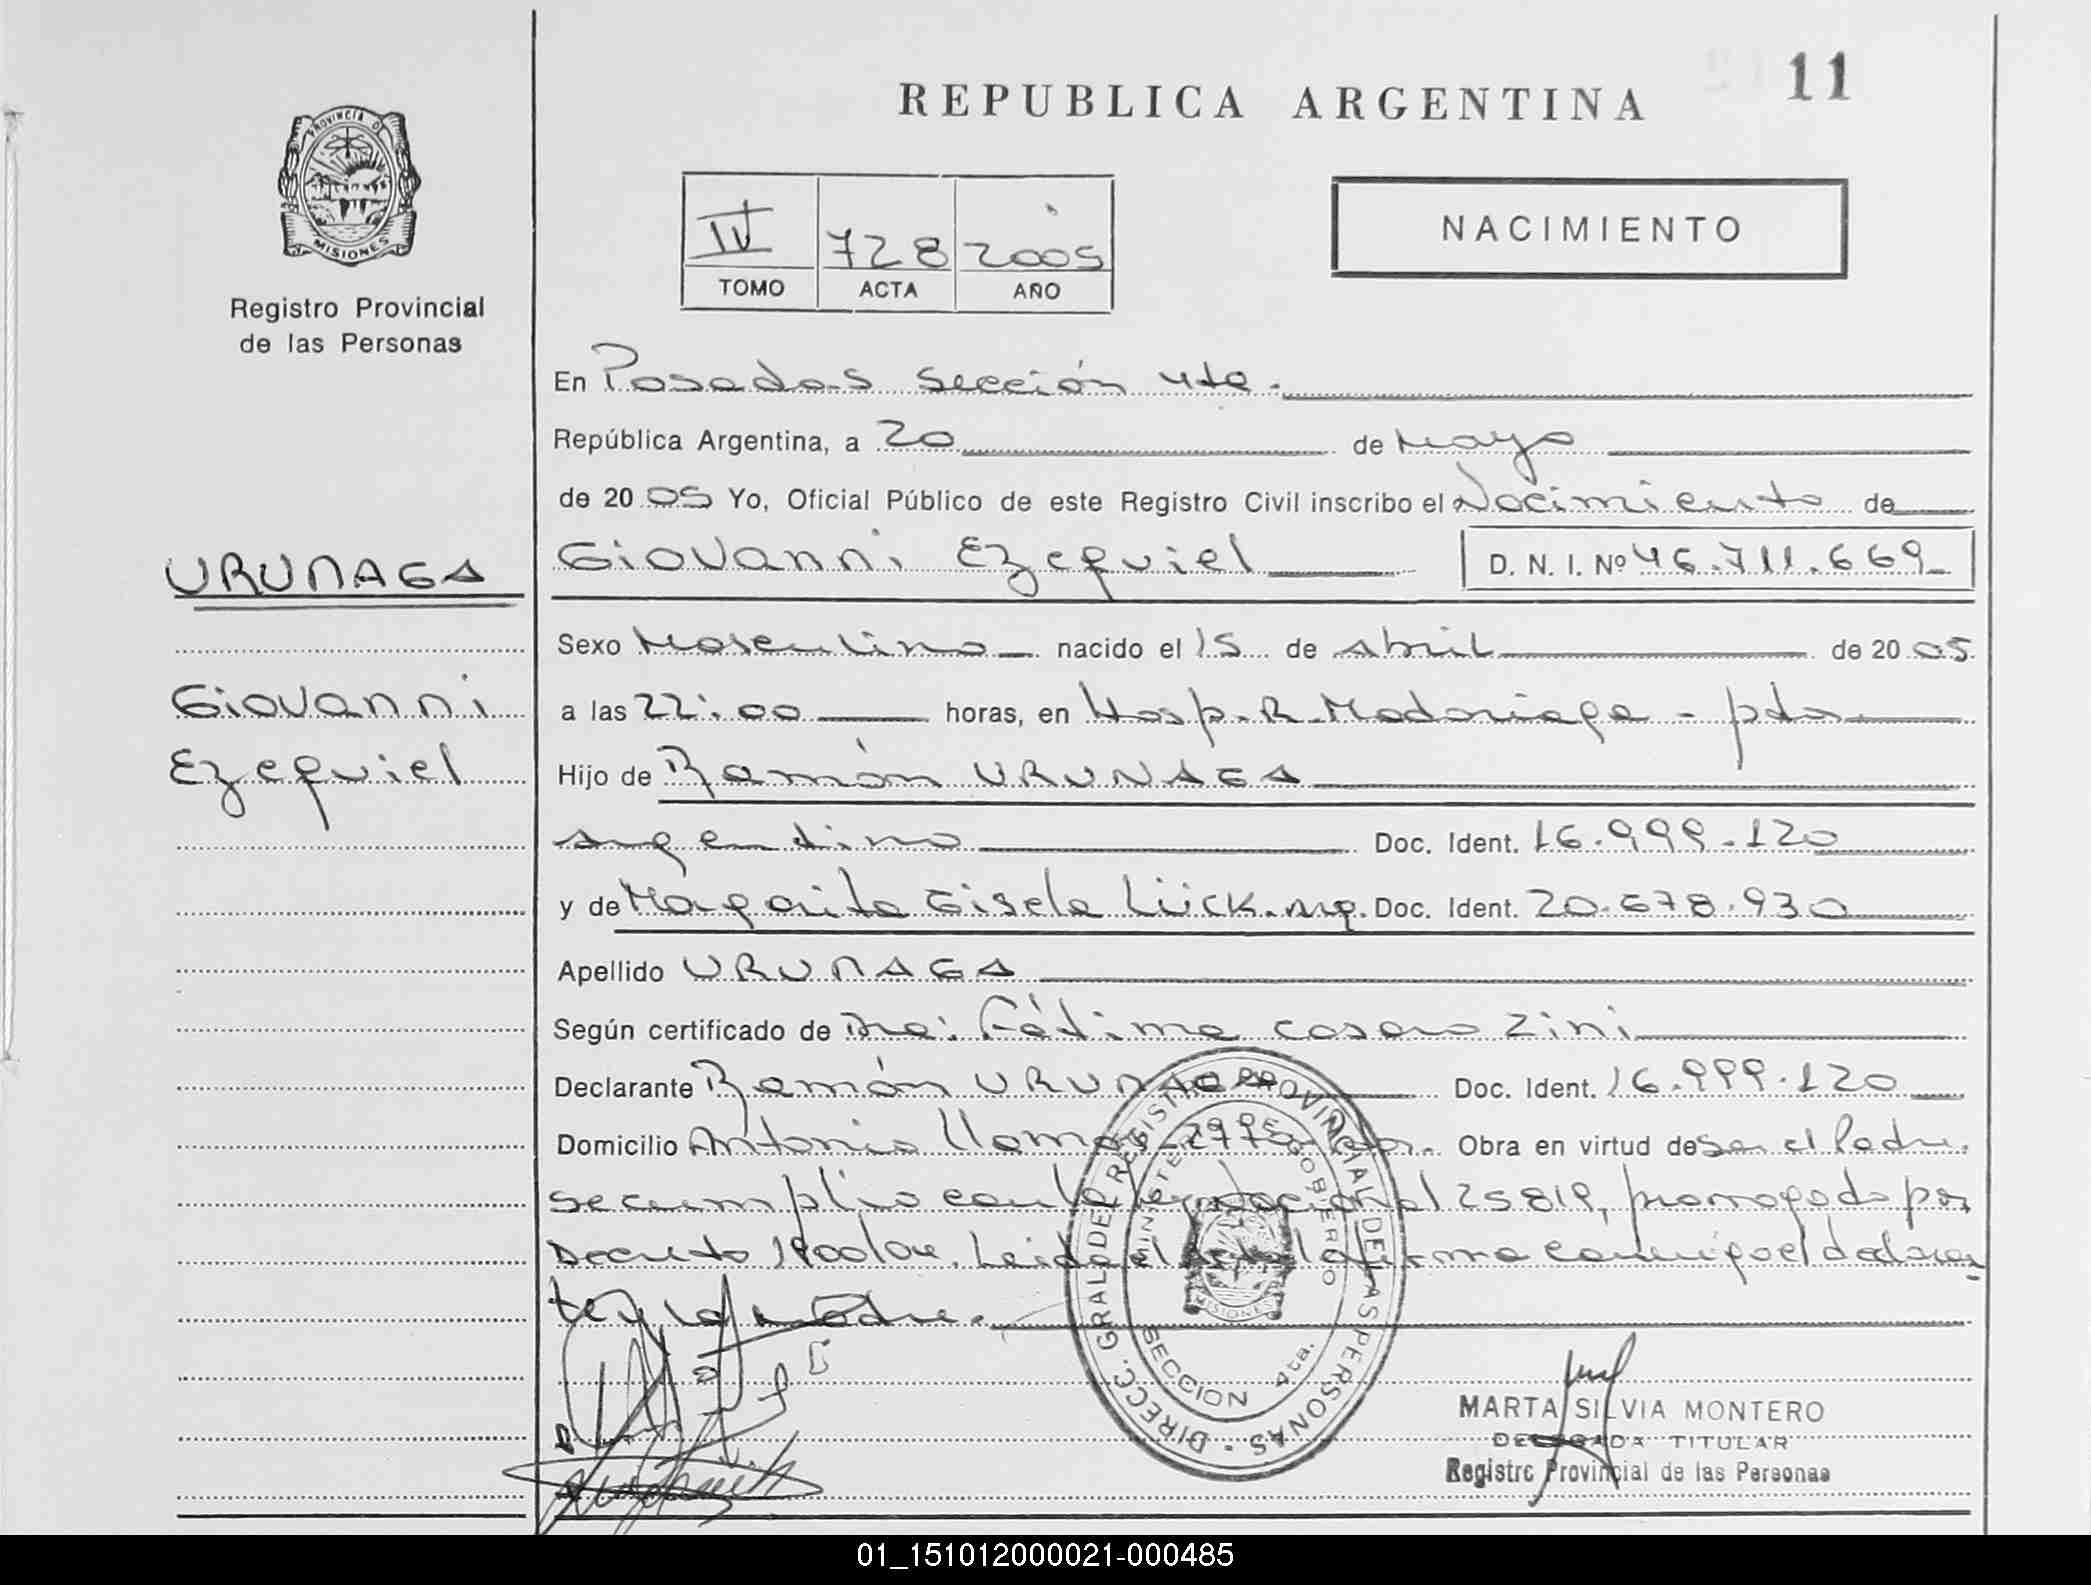 11
REPUBLICA ARGENTINA
PROVINCIA DE
MISIONES
Registro Provincial
de las Personas
IV 728 2005
TOMO ACTA AÑO
NACIMIENTO
En Posadas Sección 4ta.
República Argentina, a 20 de Mayo
de 2005 Yo, Oficial Público de este Registro Civil inscribo el Nacimiento de
URUNAGA
Giovanni Ezequiel D. N. I. Nº 46.711.669
Sexo Masculino nacido el 15 de Abril de 2005
Giovanni
a las 22:00 horas, en Hosp. R. Madariaga - pdas.
Ezequiel
Hijo de Ramón URUNAGA
argentino Doc. Ident. 16.999.120
y de Margarita Gisela Lück. arg. Doc. Ident. 20.678.930
Apellido URUNAGA
Según certificado de Dra: Fátima Casero Zini
Declarante Ramón URUNAGA Doc. Ident. 16.999.120
Domicilio Antonio Llamas 2970 Pdas. Obra en virtud de Ser el Padre.
se cumplio con la ley nacional 25819, prorrogado por
Decreto 1900/04. Leida el acta la firma conmigo el declaran
te y la madre.
DIRECC. GRAL DEL REGISTRO PROVINCIAL DE LAS PERSONAS
MINISTERIO DE GOBIERNO
MISIONES
SECCION 4ta.
MARTA SILVIA MONTERO
DELEGADA TITULAR
Registro Provincial de las Personas
01_151012000021-000485